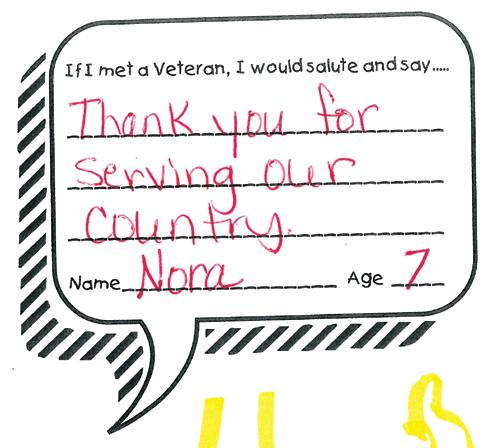 If I met a Veteran, I would salute and say.....
Thank you for
serving our
Country.
Name Nora Age 7